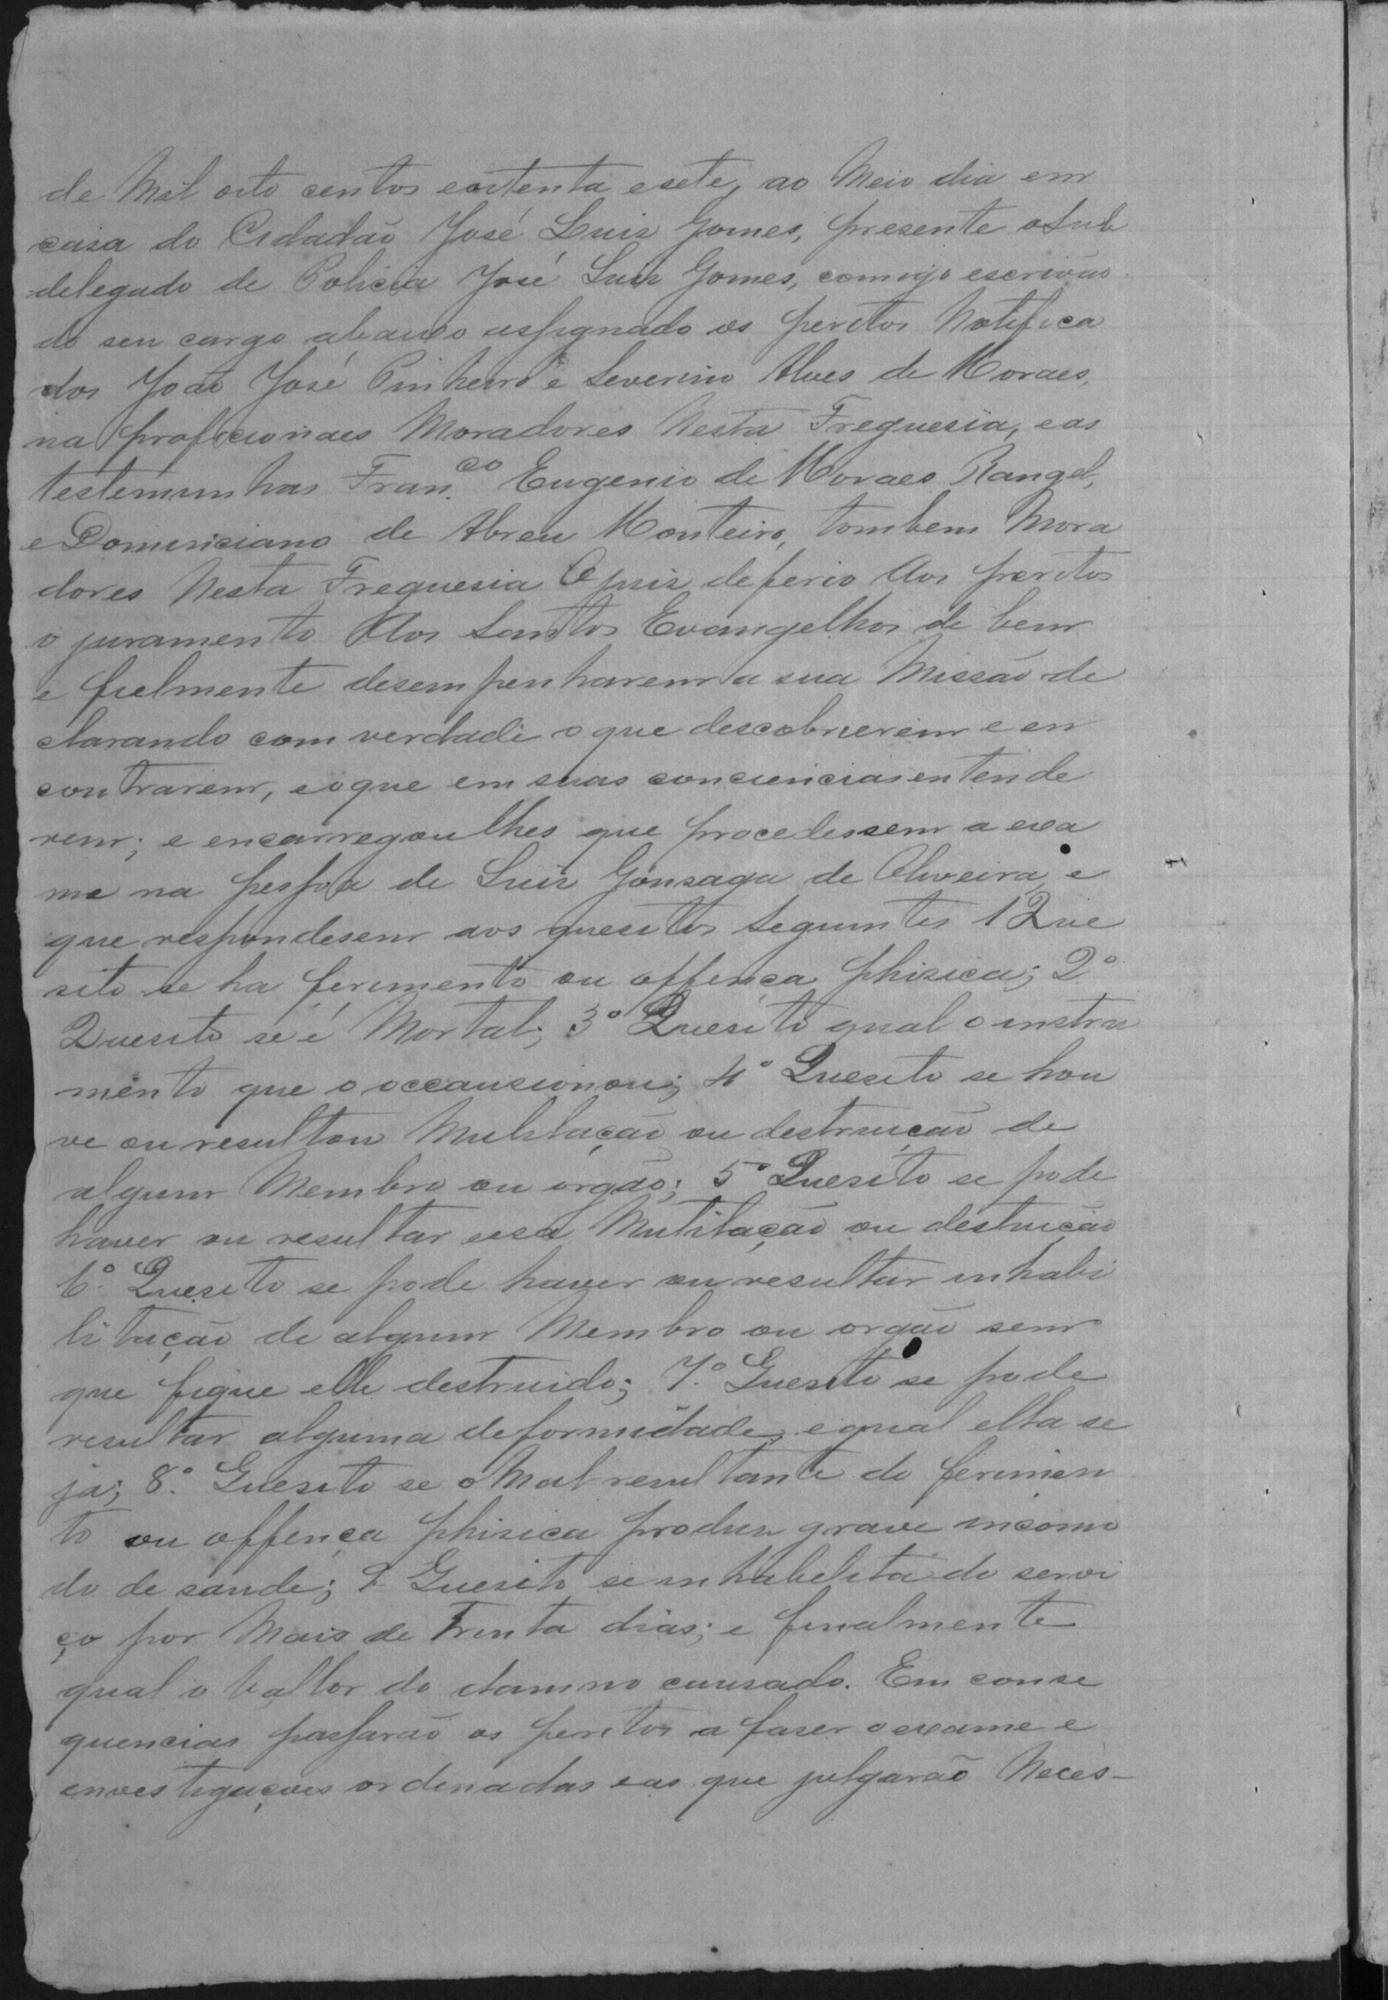 de Mil oito centos eoitenta esete, ao Meio dia em
casa do Cidadão José Luis Gomes, presente oSub
delegado de Policia José Luis Gomes, comigo escrivão
do seu cargo abaixo assignado os peritos Notifica
dos João José Pinheiro e Severino Alves de Moraes,
na proficionaes Moradores Nesta Freguesia, eas
testemunhas Fran.co Eugenio de Moraes Rangel,
e Domiciano de Abreu Monteiro, tombem Mora
dores Nesta Freguesia O juis deferio Aos peritos
o juramento Aos Santos Evangelhos de bem
e fielmente desempenharem a sua Missão de
clarando com verdade o que descobrirem e en
contrarem, eoque em suas conciencias entende
rem; e encarregoulhes que procedessem a exa
me na pessoa de Luis Gonsaga de Oliveira, e
que respondesem aos quesitos Seguintes 1 Que
sito se ha ferimento ou offença phizica; 2º
Quesito se é Mortal; 3º Quesito qual o instru
mento que o occausionou; 4º Quesito se hou
ve ou resultou Mutilação ou destruição de
algum Membro ou orgão; 5º Quesito se pode
haver ou resultar essa Mutilação ou destruição
6º Quesito se pode haver ou resultar inhabi
litação de algum Membro ou orgão sem
que fique elle destruido; 7º Quesito se pode
resultar alguma deformidade, e qual ella se
ja; 8º Quesito se o Mal resultante do ferimen
to ou offença phizica produz grave incomo
do de saude; 9 Quesito se inhabelita do servi
ço por Mais de Trinta dias; e finalmente
qual o vallor do damno causado. Em conse
quencias passarão os peritos a faser o exame e
investigaçois ordenadas eas que julgarão Neces-